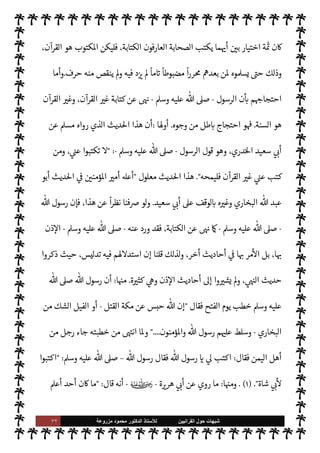 كان ثمّة اختيار بين أيهما يكتب الصحابة العارفون الكتابة، فليكن المكتوب هو القرآن،
وذلك حتى يسلموه لمن بعدهم محرراً مضبوطاً تاماً لم يزد فيه ولم ينقص منه حرف.وأما
احتجاجهم بأن الرسول - صلى الله عليه وسلم - نهى عن كتابة غير القرآن، وغير القرآن
هو السنة. فهو احتجاج باطل من وجوه. أولها :أن هذا الحديث الذي رواه مسلم عن
أبي سعيد الخدري، وهو قول الرسول - صلى الله عليه وسلم -: "لا تكتبوا عني، ومن
كتب عني غير القرآن فليمحه". هذا الحديث معلول "أعله أمير المؤمنين في الحديث أبو
عبد الله البخاري وغيره بالوقف على أبي سعيد. ولو صرفنا نظراً عن هذا، فإن رسول الله
- صلى الله عليه وسلم - كما نهى عن الكتابة، فقد ورد عنه - صلى الله عليه وسلم - الإذن
بها، بل الأمر بها في أحاديث أخر، ولذلك قلنا إن استدلالهم فيه تدليس، حيث ذكروا
حديث النهي، ولم يشيروا إلى أحاديث الإذن وهي كثيرة. منها: أن رسول الله صلى الله
عليه وسلم خطب يوم الفتح فقال "إن الله حبس عن مكة القتل - أو الفيل الشك من
البخاري - وسلط عليهم رسول الله والمؤمنون...." ولما انتهى من خطبته جاء رجل من
أهل اليمن فقال: اكتب لي يا رسول الله فقال رسول الله – صلى الله عليه وسلم: "اكتبوا
لأبي شاة". (١) . ومنها: ما روي عن أبي هريرة - ﷺ - أنه قال: "ما كان أحد أعلم
٣٢ شبهات حول القرآنيين للأستاذ الدكتور محمود مزروعة